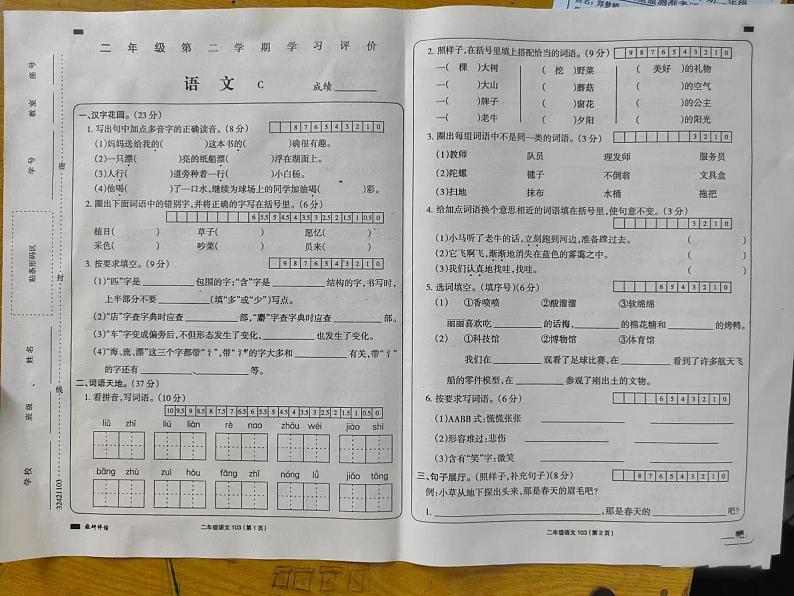 二年级第二学期学习评价
语文 C 成绩
一、汉字花园。(23分)
1. 写出句中加点多音字的正确读音。(8分) 8 7 6 5 4 3 2 1 0
(1)妈妈送给我的( )这本书的( )确很有趣。
(2)一只漂( )亮的纸船漂( )浮在湖面上。
(3)人行( )道旁种着一行( )小白杨。
(4)他喝( )了一口水,继续为球场上的同学加油喝( )彩。
2. 圈出下面词语中的错别字,并将正确的字写在括号里。(6分)
6 5.5 5 4.5 4 3.5 3 2.5 2 1.5 1 0.5 0
植日( ) 亭子( ) 愿忆( )
采色( ) 吵菜( ) 员来( )
3. 按要求填空。(9分) 9 8 7 6 5 4 3 2 1 0
(1)“匹”字是 包围的字;“含”字是 结构的字,书写时,
上半部分不要 (填“多”或“少”)写点。
(2)“店”字查字典时应查 部,“麝”字查字典时应查 部。
(3)“车”字变成偏旁后,不但形态发生了变化, 也发生了变化。
(4)“海、流、漂”这三个字都带“氵”,带“氵”的字大多和 有关,带“氵”
的字还有 、 等。
二、词语天地。(37分)
1. 看拼音,写词语。(10分)
10 9.5 9 8.5 8 7.5 7 6.5 6 5.5 5 4.5 4 3.5 3 2.5 2 1.5 1 0.5 0
liǔ zhī liú liàn rè nao zhōu wéi jiào shī
bāng zhù zuì hòu fāng zhī nóng lǜ jiāo tōng
教研评估
二年级语文 103(第1页)
2. 照样子,在括号里填上搭配恰当的词语。(9分) 9 8 7 6 5 4 3 2 1 0
一( 棵 )大树 ( 挖 )野菜 ( 美好 )的礼物
一( )大山 ( )蘑菇 ( )的空气
一( )牌子 ( )窗花 ( )的公主
一( )老牛 ( )夕阳 ( )的阳光
3. 圈出每组词语中不是同一类的词语。(3分) 3 2 1 0
(1)教师 队员 理发师 服务员
(2)陀螺 毽子 不倒翁 文具盒
(3)扫地 抹布 水桶 拖把
4. 给加点词语换个意思相近的词语填在括号里,使句意不变。(3分)
3 2 1 0
(1)小马听了老牛的话,立刻跑到河边,准备蹚过去。 ( )
(2)它飞啊飞,渐渐地消失在蓝色的雾霭之中。 ( )
(3)我们认真地找哇,找哇。 ( )
5. 选词填空。(填序号)(6分) 6 5 4 3 2 1 0
(1) ①香喷喷 ②酸溜溜 ③软绵绵
丽丽喜欢吃 的话梅, 的棉花糖和 的烤鸭。
(2) ①科技馆 ②博物馆 ③体育馆
我们在 观看了足球比赛,在 看到了许多航天飞
船的零件模型,在 参观了刚出土的文物。
6. 按要求写词语。(6分) 6 5 4 3 2 1 0
(1)AABB式:慌慌张张
(2)形容难过:悲伤
(3)含有“笑”字:微笑
三、句子展厅。(照样子,补充句子)(8分) 8 7 6 5 4 3 2 1 0
例:小草从地下探出头来,那是春天的眉毛吧?
1. ,那是春天的 吧?
二年级语文 103(第2页)
吧
座号
教室
学号
贴条形码区
姓名
班级
学校
密
封
线
32421103